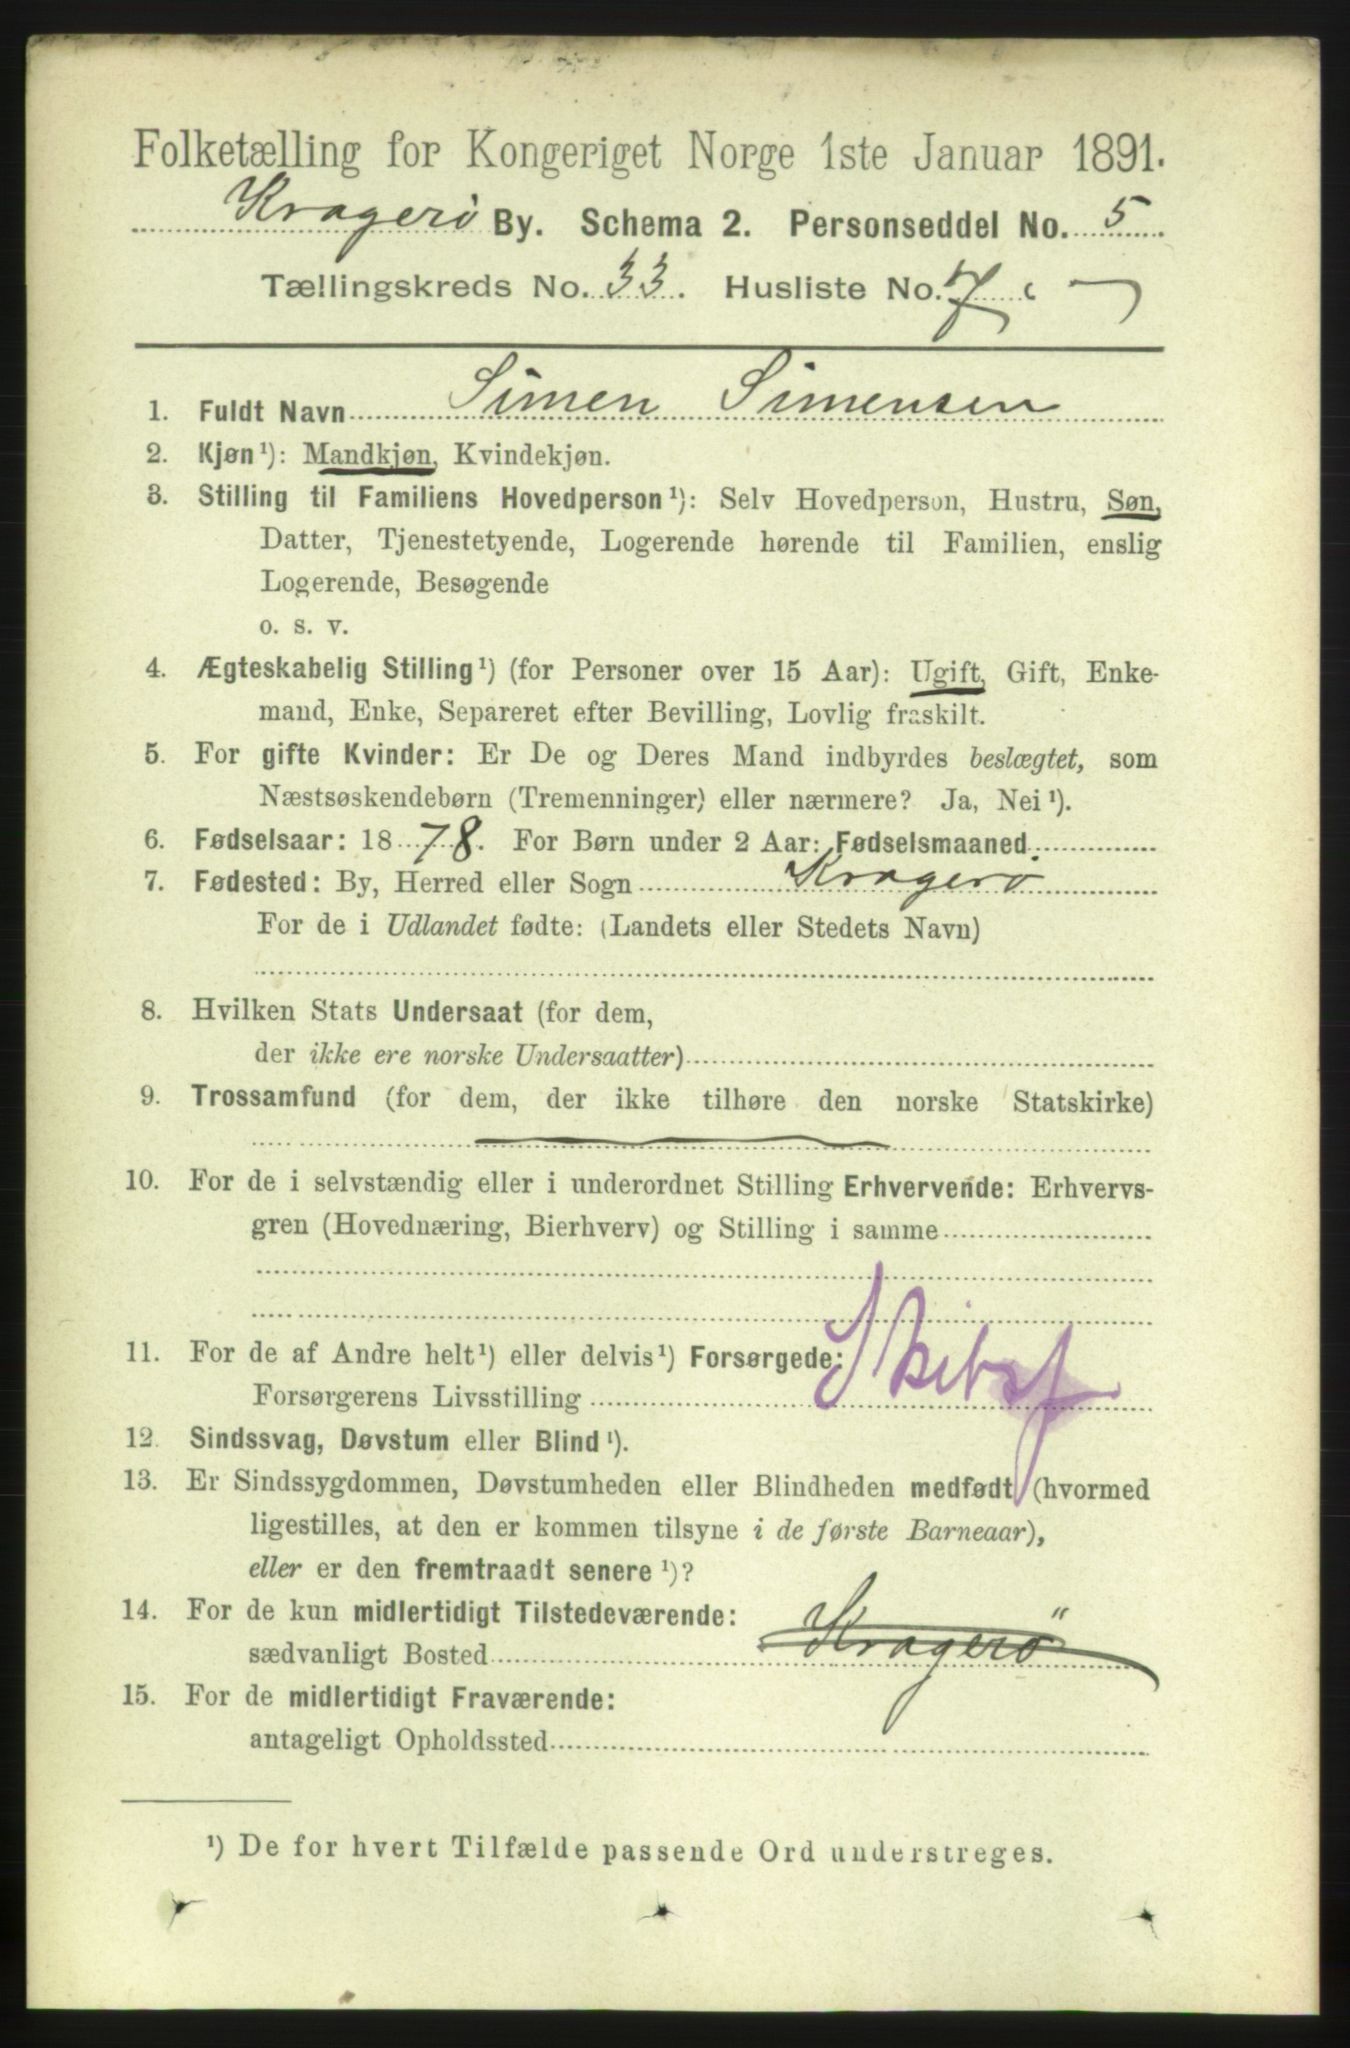 Folketælling for Kongeriget Norge 1ste Januar 1891.
Kragerö By. Schema 2. Personseddel No. 5
Tællingskreds No. 33. Husliste No. 7
1. Fuldt Navn Simen Simensen
2. Kjøn¹): Mandkjøn, Kvindekjøn.
3. Stilling til Familiens Hovedperson¹): Selv Hovedperson, Hustru, Søn,
Datter, Tjenestetyende, Logerende hørende til Familien, enslig
Logerende, Besøgende
o. s. v.
4. Ægteskabelig Stilling¹) (for Personer over 15 Aar): Ugift, Gift, Enke-
mand, Enke, Separeret efter Bevilling, Lovlig fraskilt.
5. For gifte Kvinder: Er De og Deres Mand indbyrdes beslægtet, som
Næstsøskendebørn (Tremenninger) eller nærmere? Ja, Nei¹).
6. Fødselsaar: 1878. For Børn under 2 Aar: Fødselsmaaned
7. Fødested: By, Herred eller Sogn Kragerö
For de i Udlandet fødte: (Landets eller Stedets Navn)
8. Hvilken Stats Undersaat (for dem,
der ikke ere norske Undersaatter)
9. Trossamfund (for dem, der ikke tilhøre den norske Statskirke)
10. For de i selvstændig eller i underordnet Stilling Erhvervende: Erhvervs-
gren (Hovednæring, Bierhverv) og Stilling i samme
11. For de af Andre helt¹) eller delvis¹) Forsørgede:
Forsørgerens Livsstilling Skibsf
12. Sindssvag, Døvstum eller Blind¹).
13. Er Sindssygdommen, Døvstumheden eller Blindheden medfødt (hvormed
ligestilles, at den er kommen tilsyne i de første Barneaar),
eller er den fremtraadt senere¹)?
14. For de kun midlertidigt Tilstedeværende:
sædvanligt Bosted Kragerö
15. For de midlertidigt Fraværende:
antageligt Opholdssted
¹) De for hvert Tilfælde passende Ord understreges.